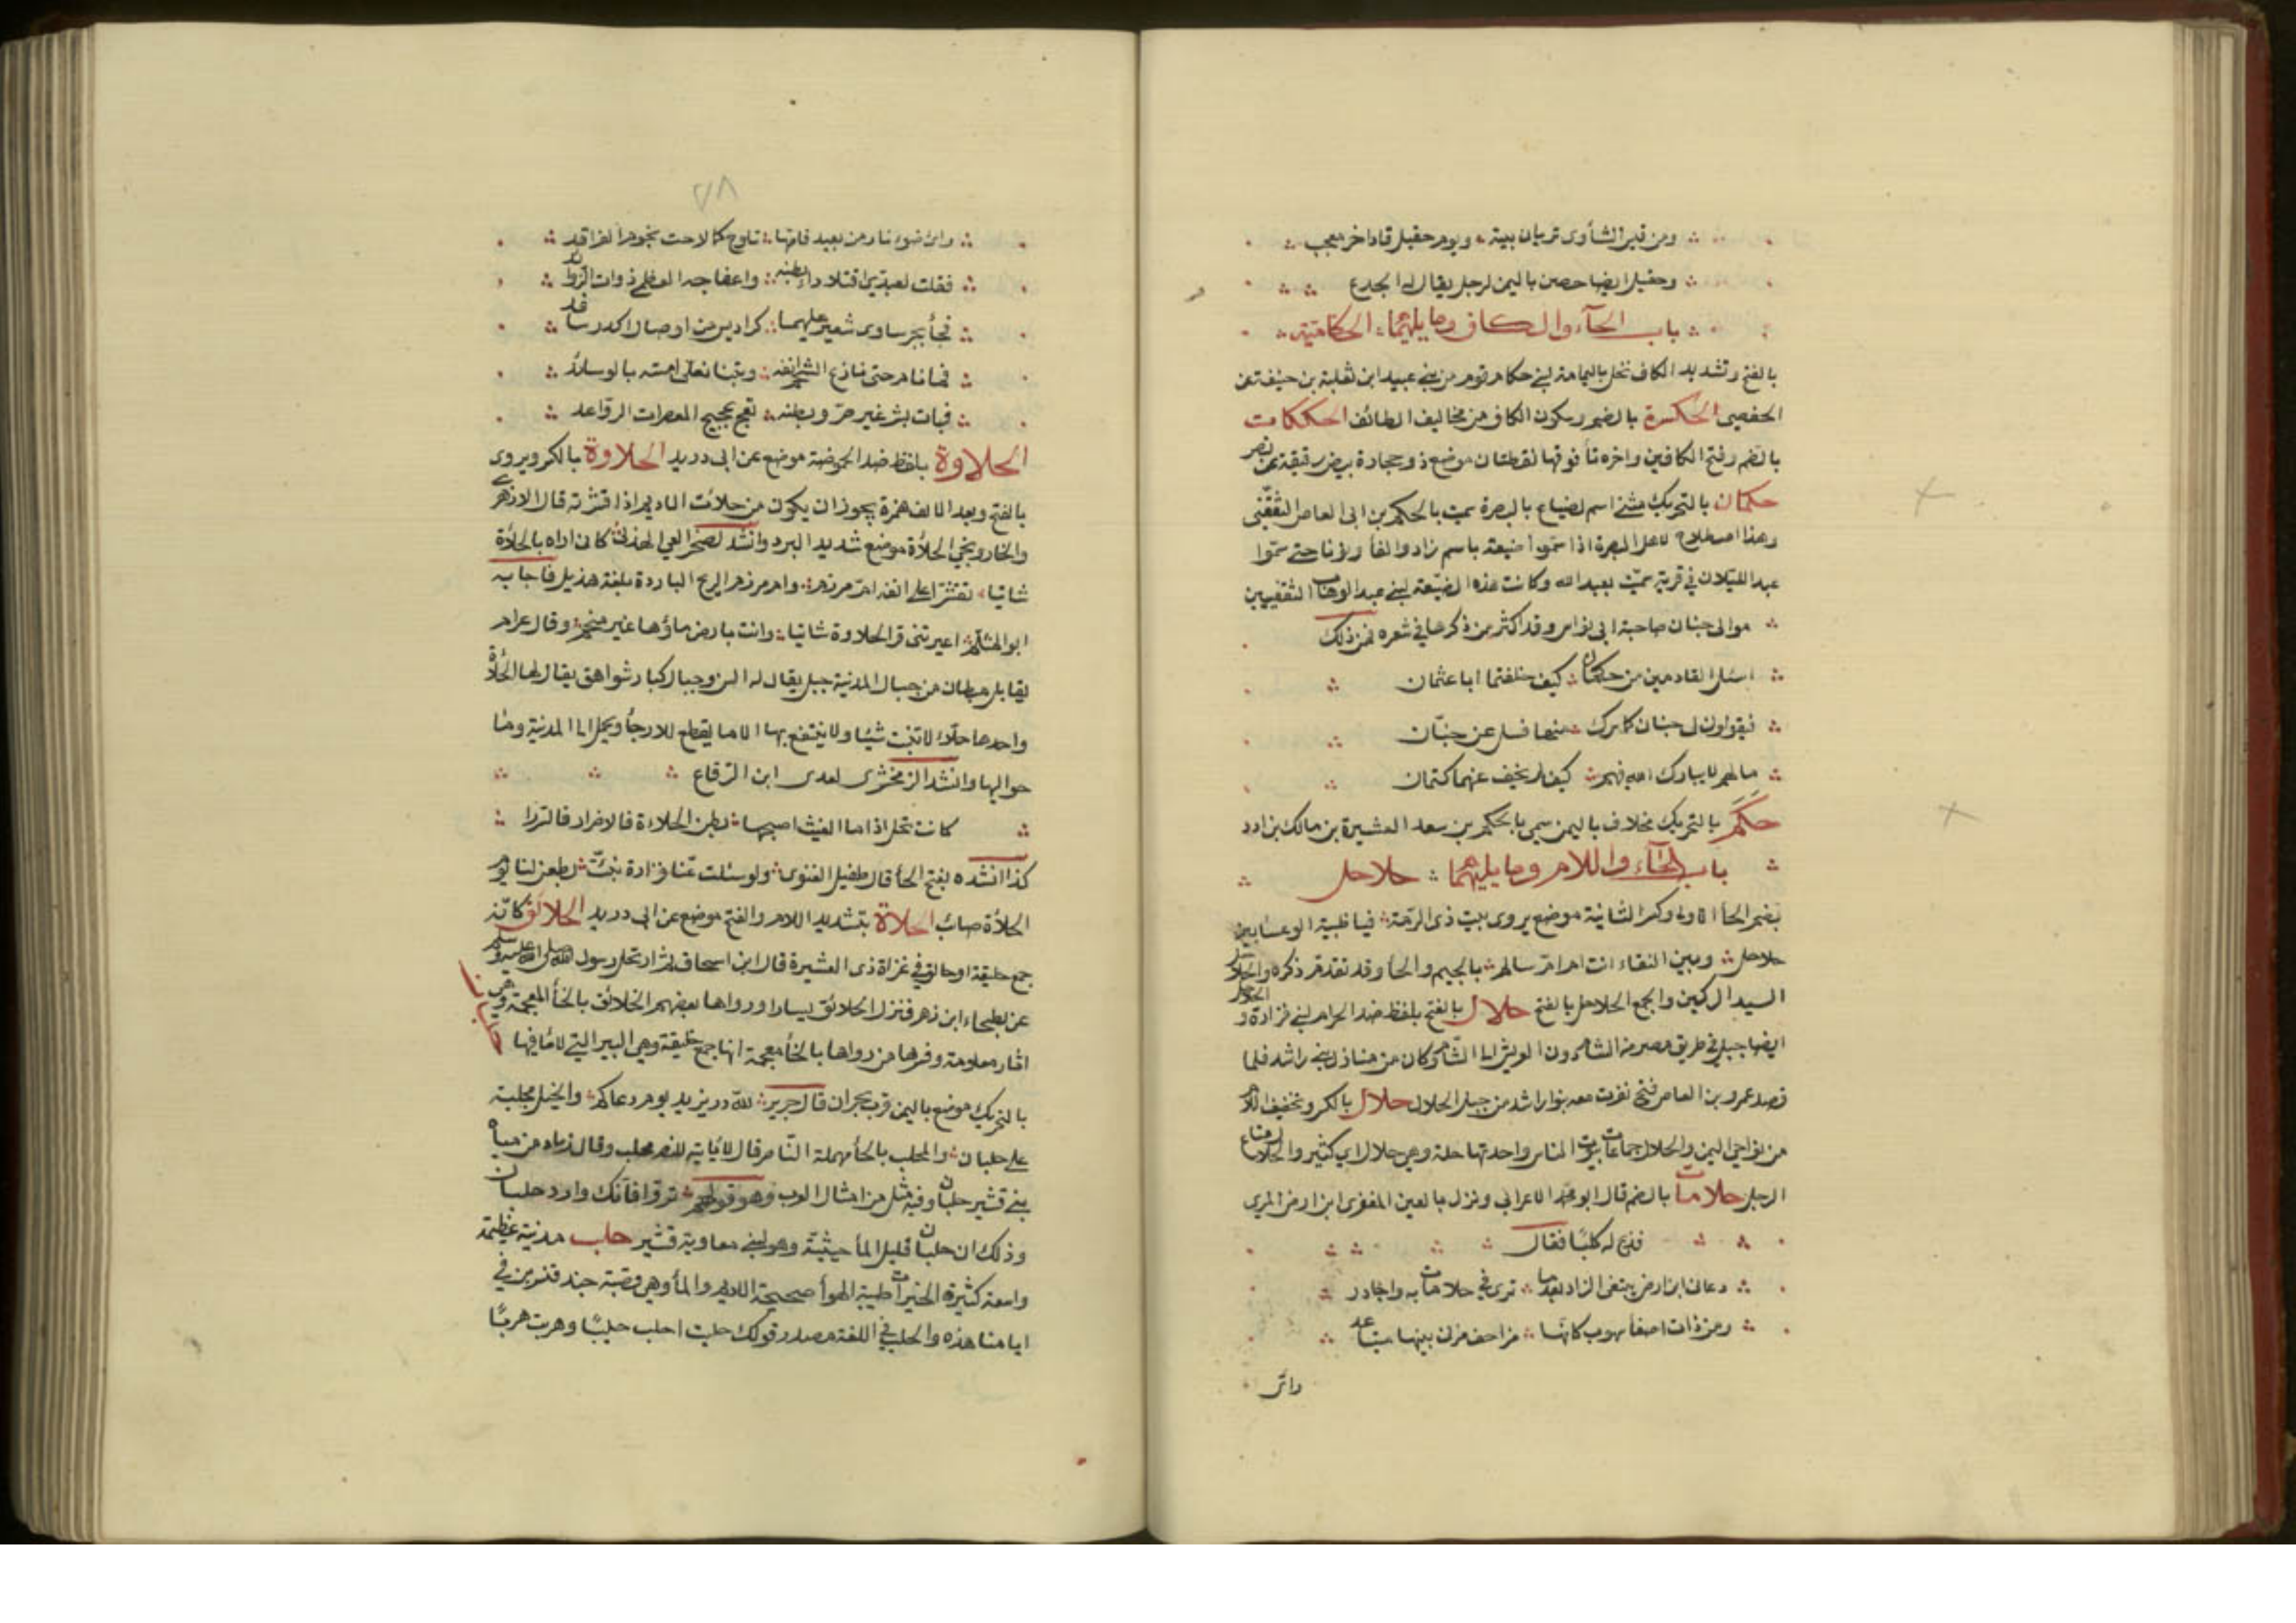 ومن قبر الشأوى تربان بيته وبوم حقيل قاد اخر معجب
وحقيل ايضا حصن باليمن لرجل يقال له الجدع
باب الحآء والكاف وما يليهما الحكامية
بالفتح وتشديد الكاف نخل باليمامة لبني حكام قوم من بني عبيد ابن ثعلبة بن حنيفة عن
الحفصي الحكرة بالضم وسكون الكاف من مخاليف الطائف الحككات
بالضم وفتح الكافين واخره تأ فوقها نقطتان موضع ذو حجارة بيض رقيقة عن نصر
حكمان بالتحريك مثنى اسم لضياع بالبصرة سميت بالحكم بن ابى العاص الثقفي
وهذا اصطلاح لاهل البصرة اذا سموا ضيعة باسم زادوا الفا ونونا حتى سموا
عبد الليلان في قرية سميت بعبد الله وكانت هذه الضيعة لبني عبد الوهاب الثقفيين
موالى جنان صاحبة ابى نواس وقد اكثر من ذكرها في شعره فمن ذلك
اسئل القادمين من حكمان كيف خلفتما ابا عثمان
فيقولون لى جنان كما سرك منها فسل عن جنان
ما لهم لا يبارك الله فيهم كيف لم يخف عنهما كتمان
حكم بالتحريك مخلاف باليمن سمي بالحكم بن سعد العشيرة بن مالك بن ادد
باب الحآء واللام وما يليهما حلاحل
بضم الحأ الاولى وكسر الثانية موضع يروى بيت ذى الرمة فيا ظبية الوعسا بين
حلاحل وبين النقاء انت ام ام سالم بالجيم والحأ وقد تقدم ذكره والحلاحل
السيد الركين والجمع الحلاحل بالفتح حلال بالفتح بلفظ ضد الحرام لبني فزارة و
ايضا جبل في طريق مصر من الشام دون العريش الى الشام وكان من منازل بني راشد فلما
قصد عمرو بن العاص فتح نفرت معه بنو راشد من جبل الحلال حلال بالكسر وتخفيف اللام
من نواحي اليمن والحلال جماعات بيوت الناس واحدتها حلة وهي حلال اي كثير والحلال متاع
الرجل حلامات بالضم قال ابو محمد الاعرابي ونزل بالعين المنقرى ابن ارض المري
فذبح له كلبا فقال
دعان ابن ارض يبتغى الزاد بعدما ترى في حلامات به واجادر
ومن ذات اصفأ سهوب كانها مزاحف هزلى بينها متباعد
رأى
٧٨
رأى ضوء نار من بعيد فامها تلوح كما لاحت نجوم الفراقد
فقلت لعبدي اقتلا داء بطنه واعفاجه العظمى ذوات الزوائد
فجأ بجرساوى شعير عليهما كراديس من اوصال اكدر سافد
فما نام حتى نازع الشم انفه وبتنا نعلى استه بالوسائد
فبات بشر غير ضر وبطنه تعج عجيج المعصرات الرواعد
الحلاوة بلفظ ضد الحموضة موضع عن ابى دريد الحلاوة بالكسر ويروى
بالفتح وبعد الالف همزة يجوز ان يكون من حلأت الاديم اذا قشرته قال الازهري
والخارزنجي الحلأة موضع شديد البرد وانشد لصخر الغي الهذلي كانى اراه بالحلأة
شاتيا تقشر اعلى انفه ام مرزم وام مرزم الريح الباردة بلغة هذيل فاجابه
ابو المثلم اعيرتنى قر الحلاوة شاتيا وانت بارض ماؤها غير منجم وقال عرام
يقابل ميطان من جبال المدنية جبل يقال له السن وجبال كبار شواهق يقال لها الحلأة
واحدها حلاء لا تنبت شيئا ولا ينتفع بها الا ما يقطع للارحأ ويحمل الى المدنية وما
حواليها وانشد الزمخشرى لعدى ابن الرقاع
كانت تحل اذا ما الغيث اصبحها بطن الحلاءة فالامرار فالسررا
كذا انشده بفتح الحأ قال طفيل الغنوى ولو سئلت عنا فزارة نبأت بطعن لنا يوم
الحلأة صائب الحلاة بتشديد اللام والفتح موضع عن ابى دريد الحلائق كانه
جمع حليقة او حالق في غزاة ذى العشيرة قال ابن اسحاق ثم ارتحل رسول الله صلى الله عليه وسلم
عن بطحاء ابن ازهر فنزل الحلائق يسارا ورواها بعضهم الخلائق بالخأ المعجمة وهى
اثار معلومة وفسرها من رواها بالخأ معجمة انها جمع خليقة وهي البير التي لا مأ فيها
حلبان
بالتحريك موضع باليمن قرب نجران قال جرير لله در يزيد يوم دعاكم والخيل مجلبة
على حلبان والمجلب بالحأ مهملة الناصر قال لا ياتيه للنصر محلب وقال زياد من مياه
بني قشير حلبان وفيه مثل من امثال العرب وهو قولهم تروّ فانك وارد حلبان
وذلك ان حلبان قليل المأ خبيثه وهو لبني معاوية قشير حلب مدنية عظيمة
واسعة كثيرة الخيرات طيبة الهوأ صحيحة الاديم والمأ وهي قصبة جند قنسرين في
ايامنا هذه والحلب في اللغة مصدر قولك حلبت احلب حلبا وهربت هربا